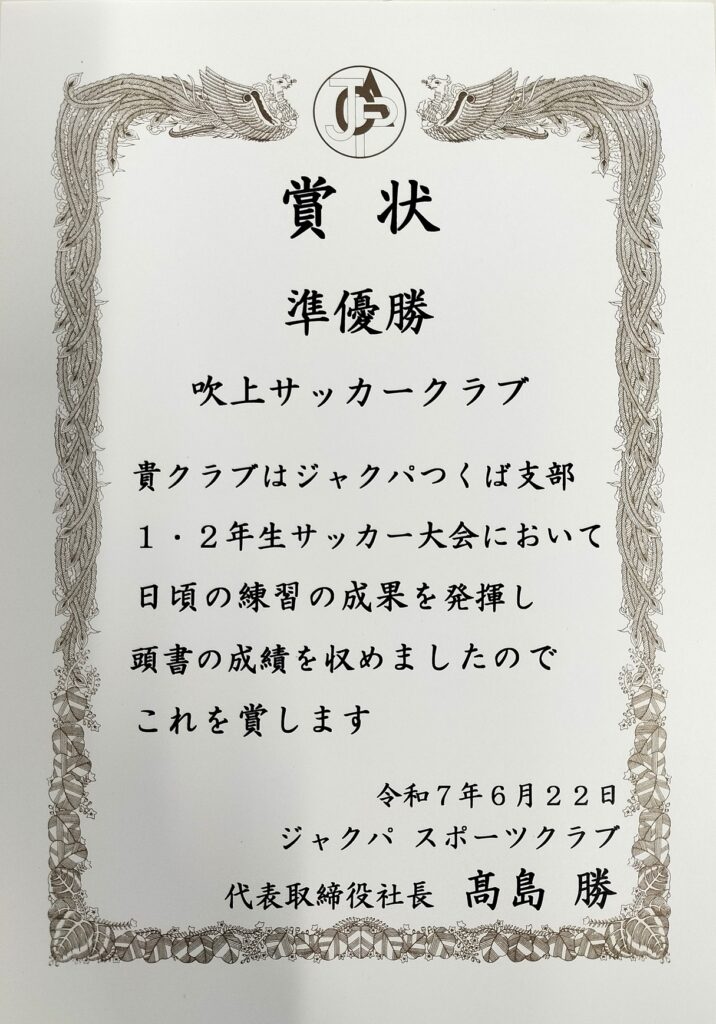 賞状
準優勝
吹上サッカークラブ
貴クラブはジャクパつくば支部
１・２年生サッカー大会において
日頃の練習の成果を発揮し
頭書の成績を収めましたので
これを賞します
令和７年６月２２日
ジャクパ スポーツクラブ
代表取締役社長 髙島 勝